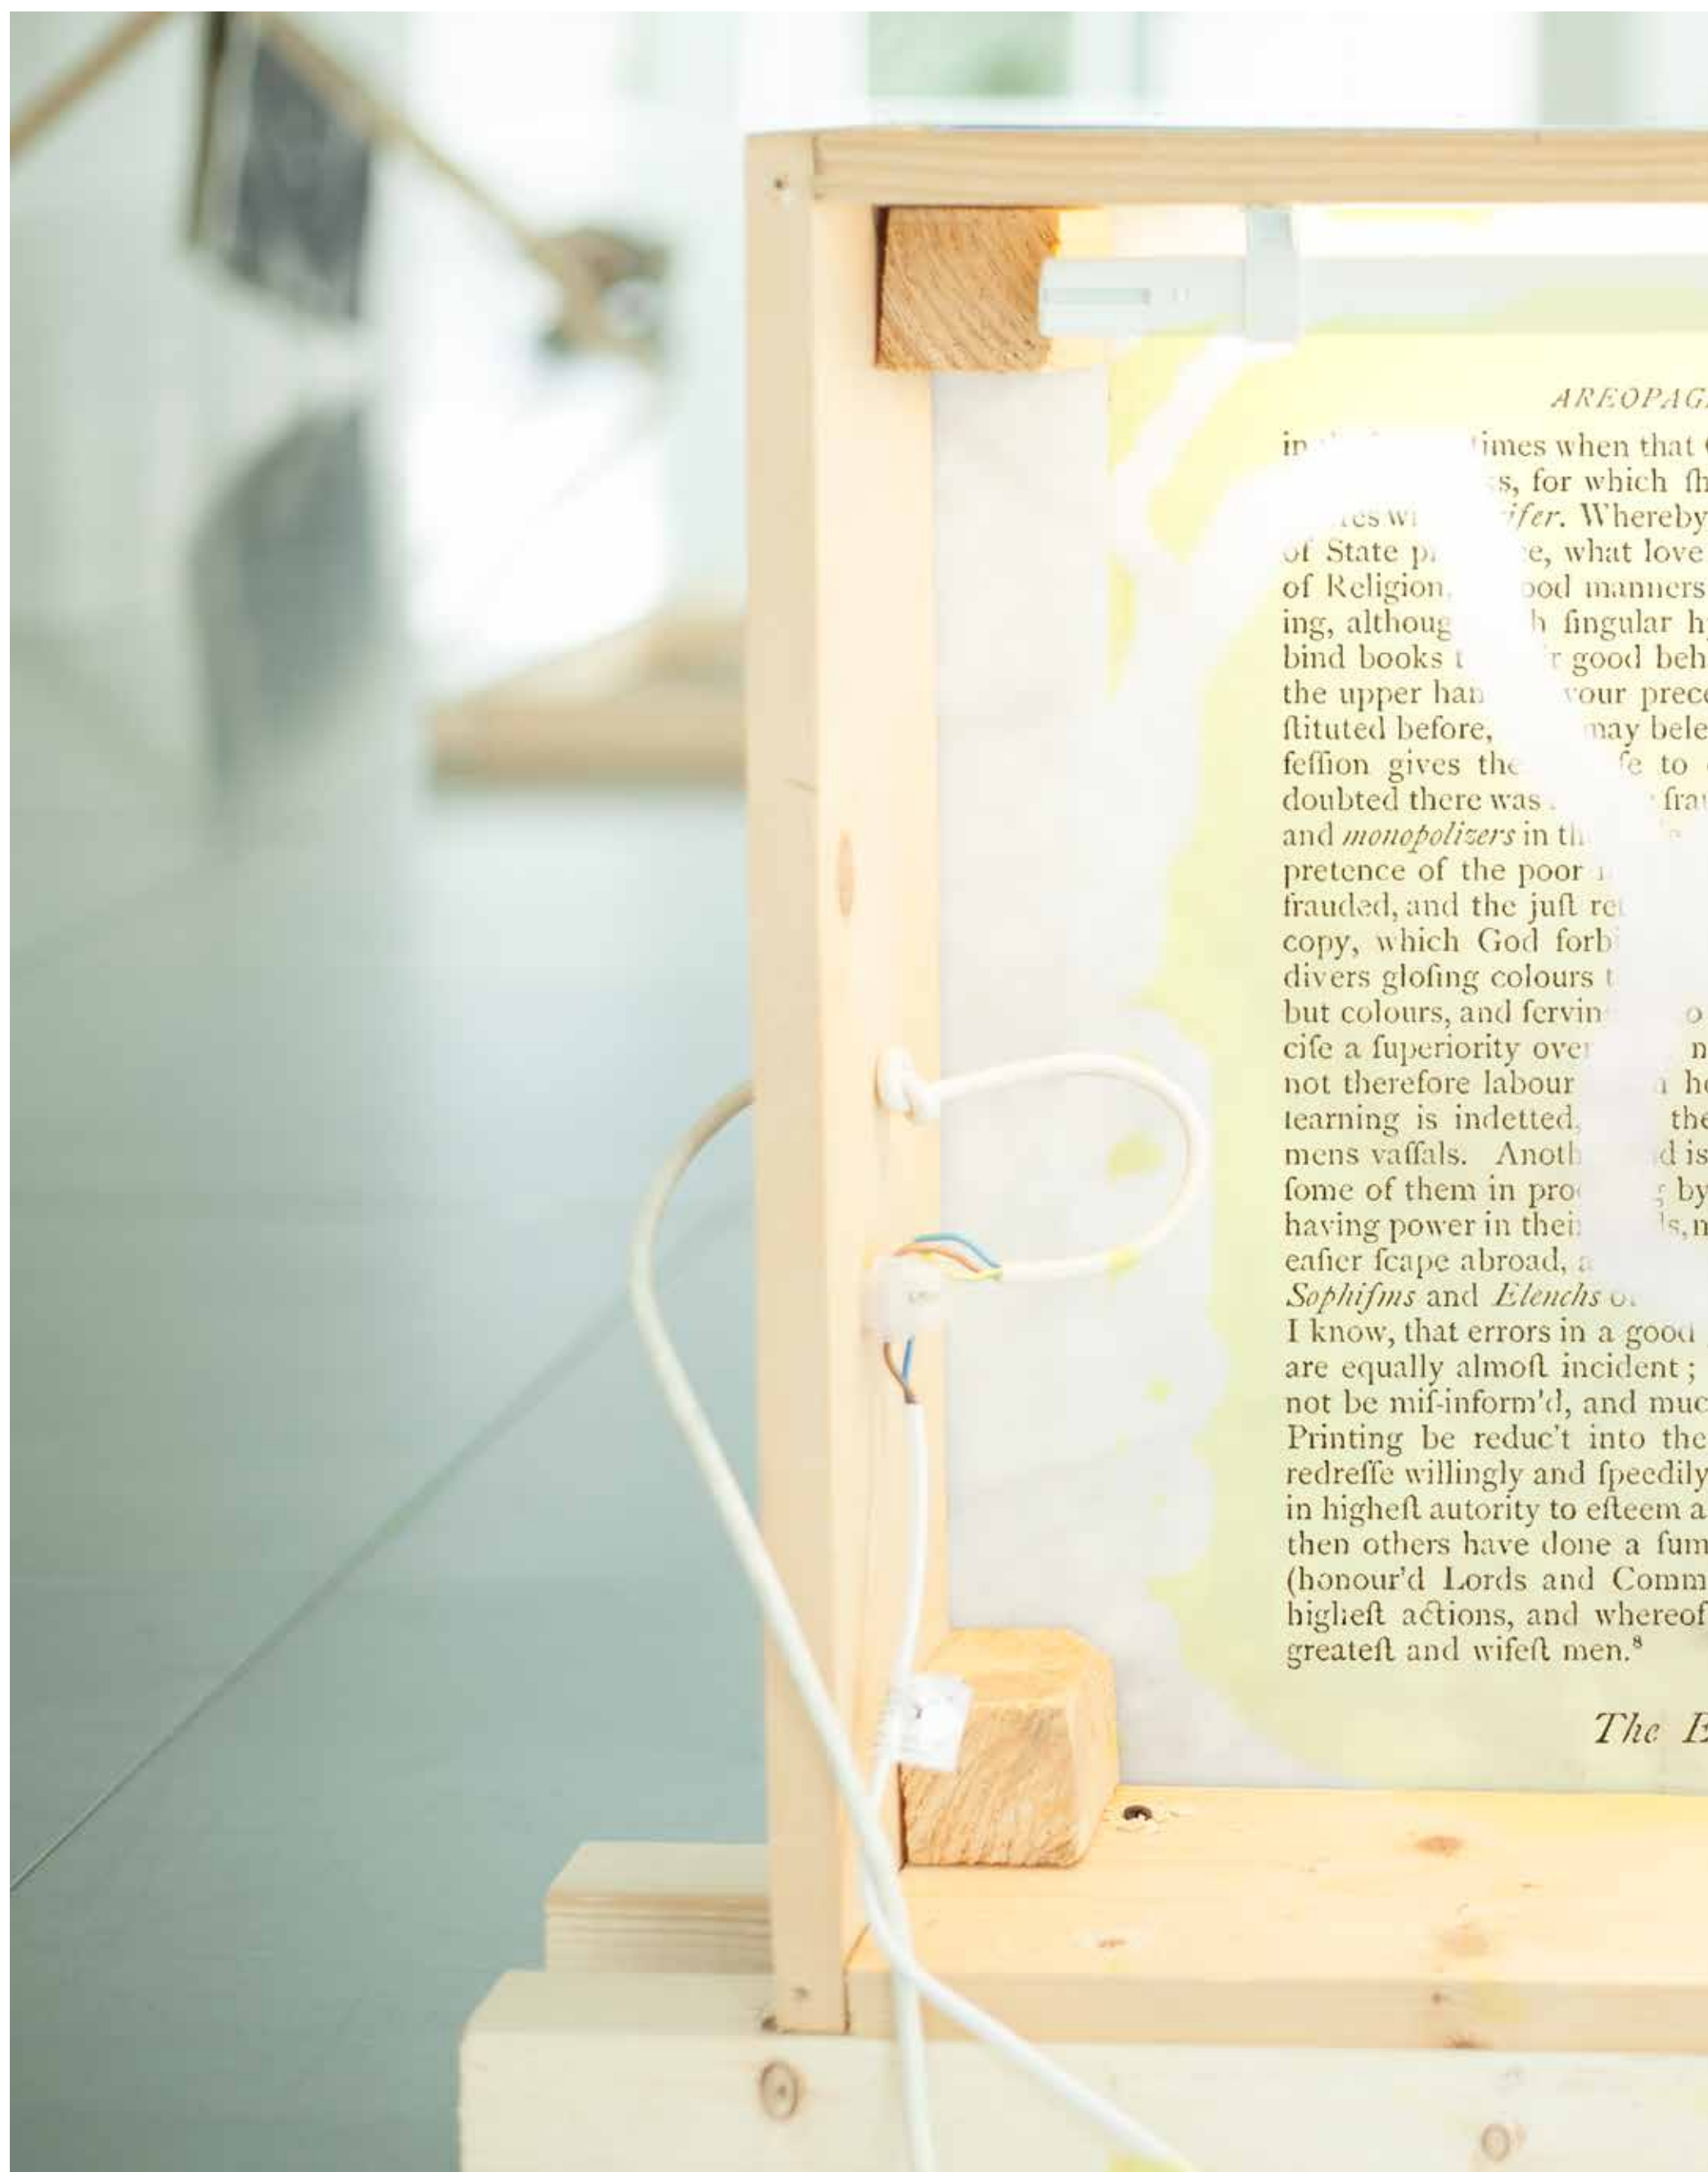 AREOPAG
in times when that
s, for which ſh
ifer. Whereby
of State p e, what love
of Religion, ood manners
ing, althoug h ſingular h
bind books t r good beh
the upper han your prece
ſtituted before, may bele
feſſion gives the fe to
doubted there was frau
and monopolizers in th
pretence of the poor
frauded, and the juſt re
copy, which God forbi
divers gloſing colours t
but colours, and ſervin o
ciſe a ſuperiority over n
not therefore labour he
learning is indetted, the
mens vaſſals. Anoth d is
ſome of them in pro g by
having power in thei s, n
eaſier ſcape abroad, a
Sophiſms and Elenchs o
I know, that errors in a good
are equally almoſt incident ;
not be miſ-inform'd, and muc
Printing be reduc't into the
redreſſe willingly and ſpeedily
in higheſt autority to eſteem a
then others have done a ſum
(honour'd Lords and Comm
higheſt actions, and whereof
greateſt and wiſeſt men.⁸
The E